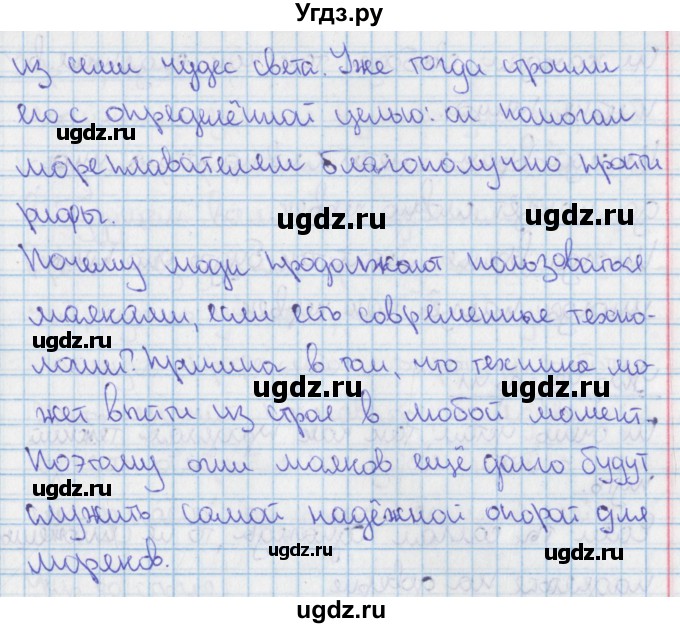 Угдз.ру
из семи чудес света. Уже тогда строили
его с определённой целью: он помогал
ugdz.ru
мореплавателям благополучно пройти
рифы.
ugdz.ru
ugdz.ru
Почему люди продолжают пользоваться
маяками, если есть современные техно-
ugdz.ru
логии? Причина в том, что техника мо-
ugdz.ru
ugdz.ru
жет выйти из строя в любой момент.
Поэтому огни маяков ещё долго будут
ugdz.ru
служить самой надёжной опорой для
ugdz.ru
ugdz.ru
моряков.
ugdz.ru